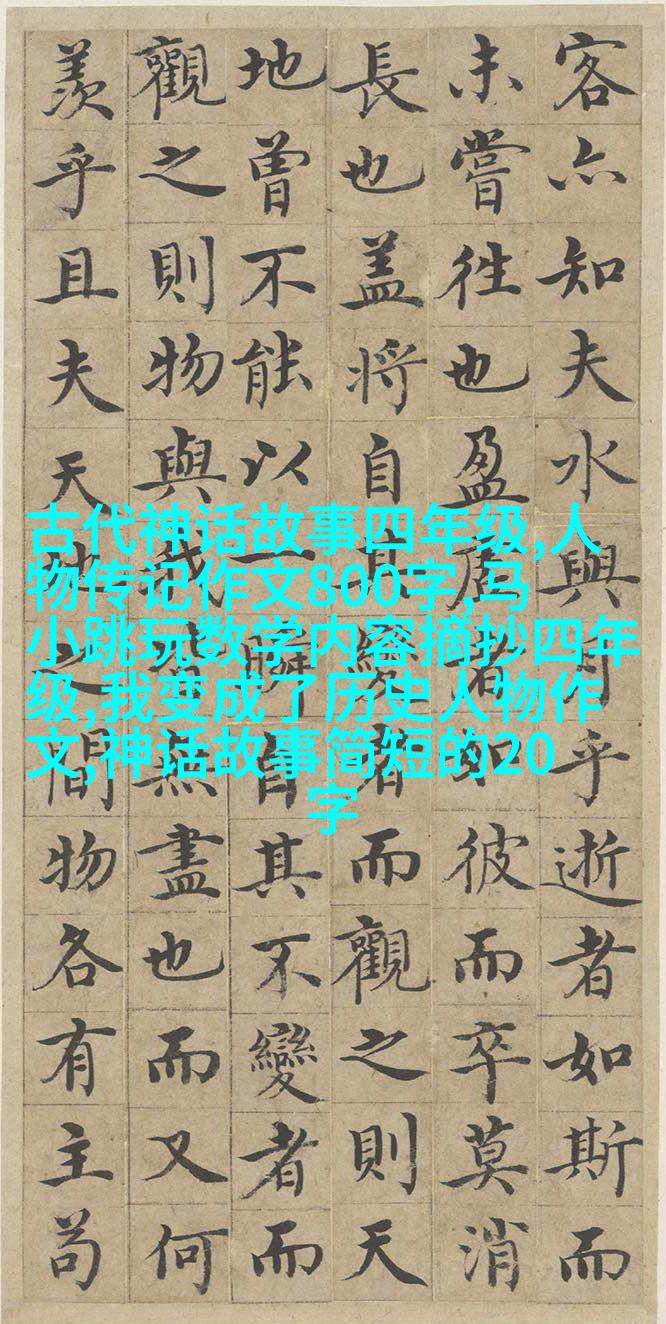 客亦知夫水與月乎逝者如斯而
未嘗往也盈虛者如彼而卒莫消
長也蓋將自其變者而觀之則天
地曾不能以一瞬自其不變者而
觀之則物與我皆無盡也而又何
羨乎且夫天地之間物各有主苟
古代神话故事四年级,人
物传记作文800字,马
小跳玩数学内容摘抄四年
级,我变成了历史人物作
文,神话故事简短的20
字